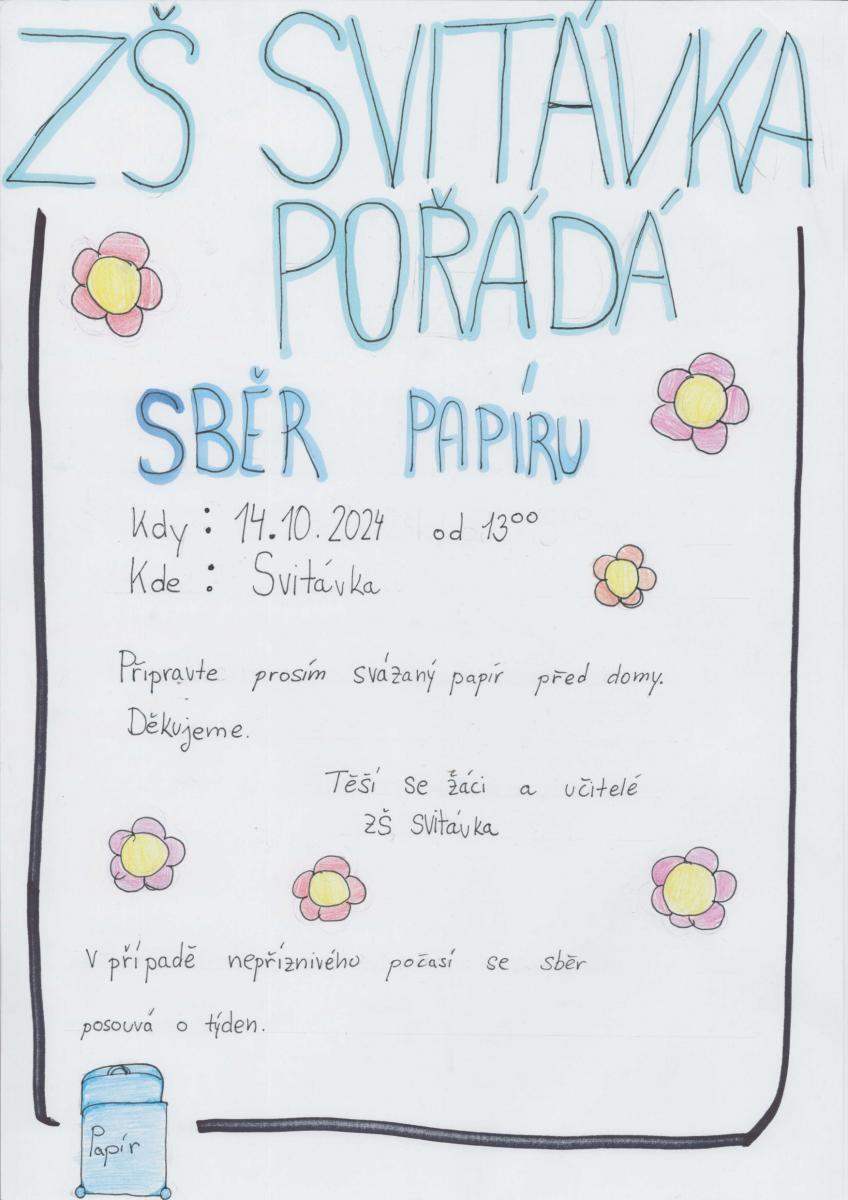 ZŠ SVITÁVKA
POŘÁDÁ
SBĚR PAPÍRU
Kdy: 14.10.2024 od 13⁰⁰
Kde: Svitávka
Připravte prosím svázaný papír před domy.
Děkujeme.
Těší se žáci a učitelé
ZŠ SVItávka
V případě nepříznivého počasí se sběr
posouvá o týden.
Papír